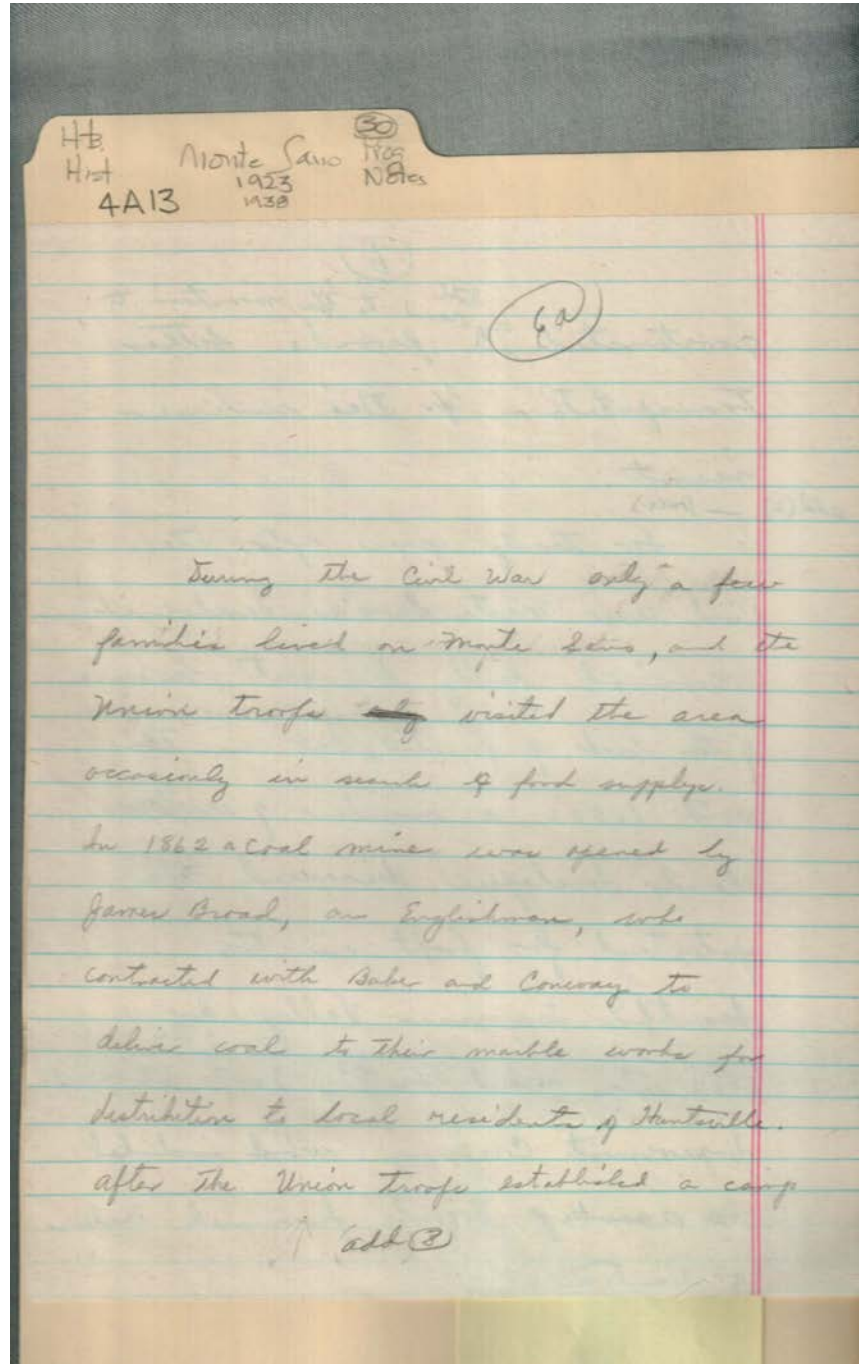 Hist
Monte Sano
1923
1938
30
Notes
4A13
6a
During the Civil War only a few
families lived on Monte Sano, and the
Union troops visited the area
occasionly in search of food supplys.
In 1862 a coal mine was opened by
James Broad, an Englishman, who
contracted with Baker and Conway to
deliver coal to their marble works for
distribution to local residents of Huntsville.
after the Union troops established a camp
add 3